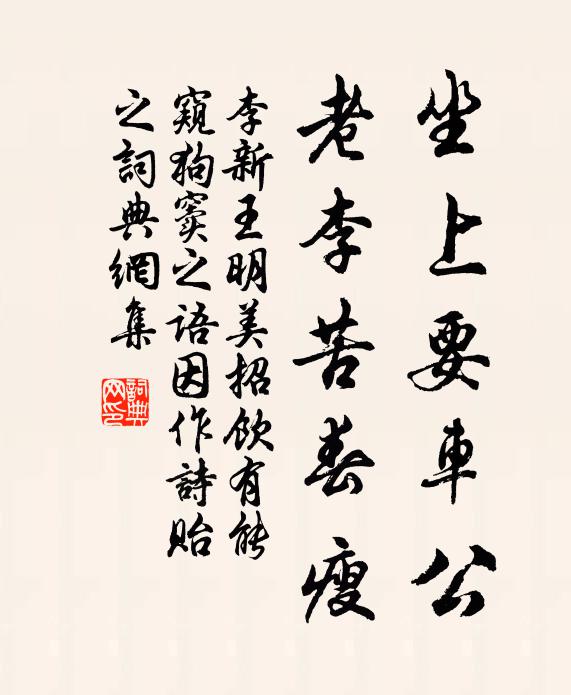 坐上要車公
老李苦春瘦
李新王明美招飲有能
窺狗竇之語因作詩貽
之詞典網集
詞典网印